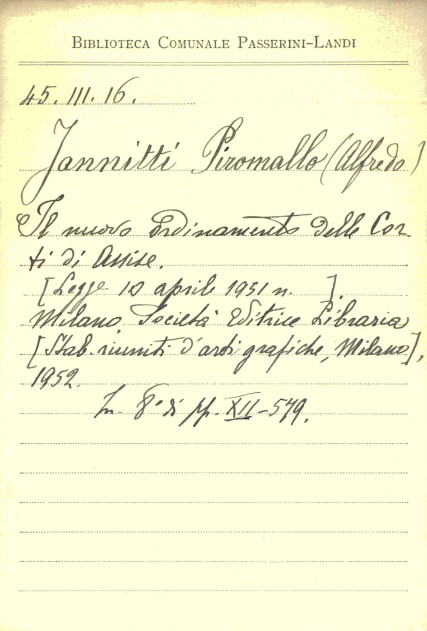 BIBLIOTECA COMUNALE PASSERINI-LANDI
45.III.16.
Jannitti Piromallo (Alfredo)
Il nuovo Ordinamento delle Cor-
ti di Assise.
[Legge 10 aprile 1951 n. ].
Milano, Società Editrice Libraria
[Stab. riuniti d'arti grafiche, Milano],
1952.
In 8° di pp. XII-579.